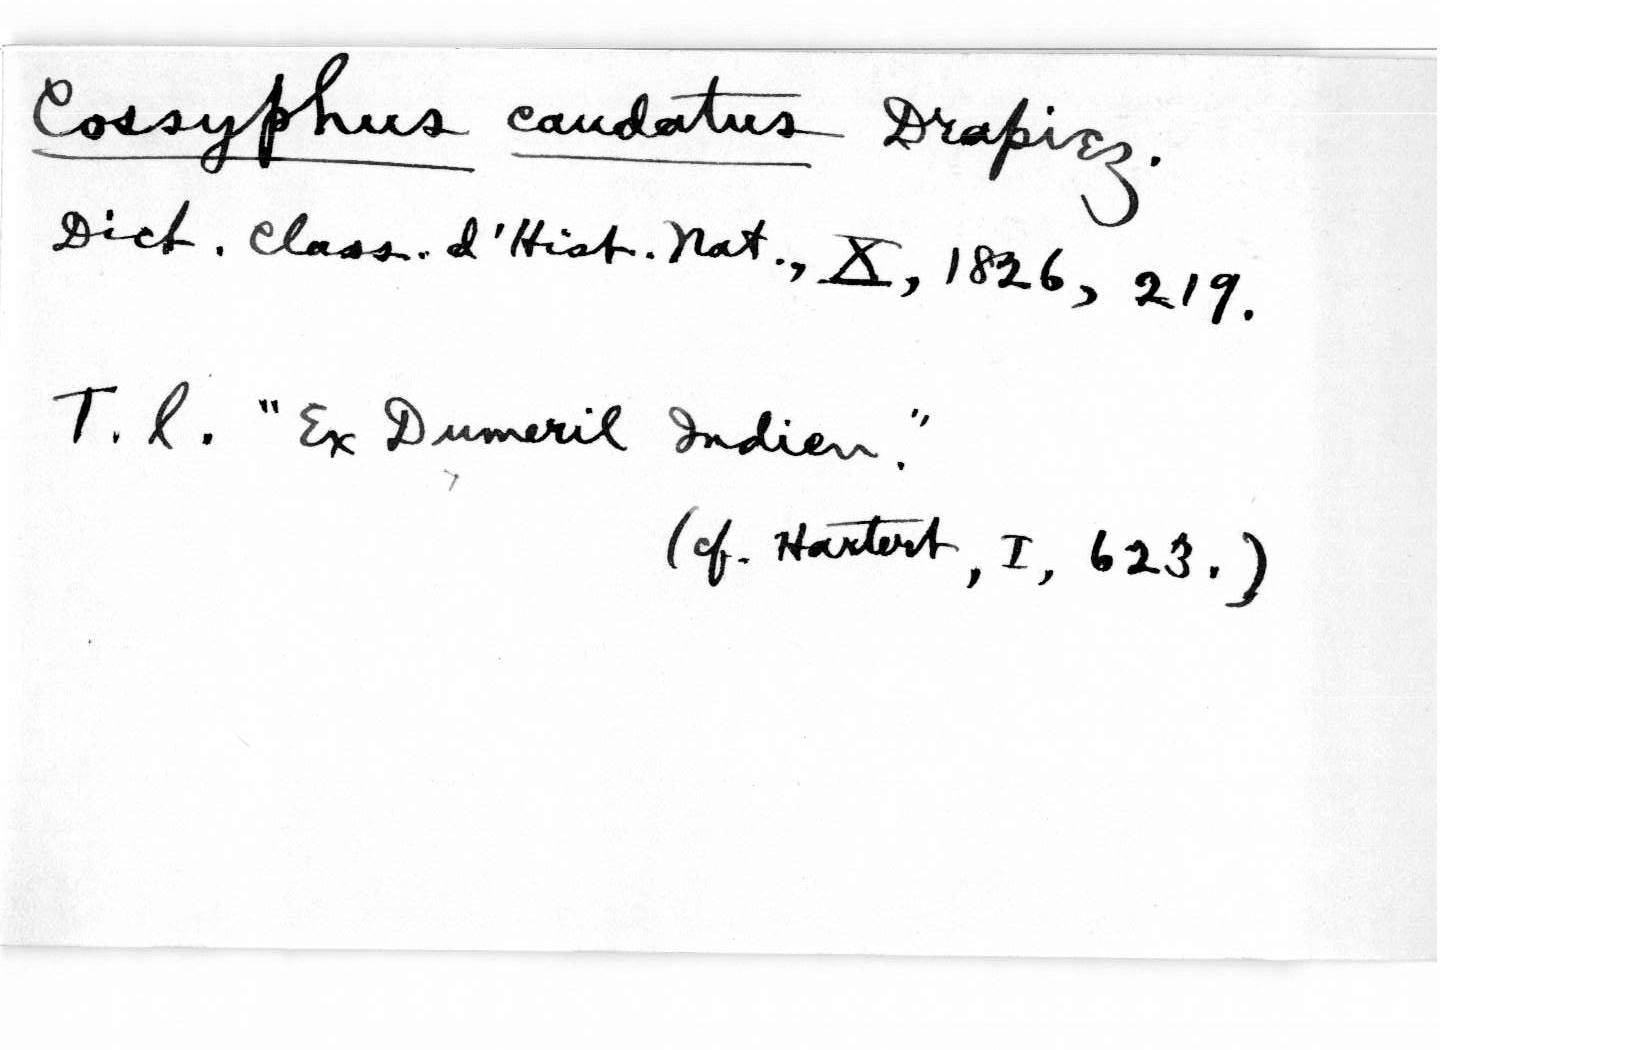 Cossyphus caudatus Drapiez.
Dict. Class. d'Hist. Nat., X, 1826, 219.
T. l. "Ex Dumeril Indien."
(cf. Hartert, I, 623.)